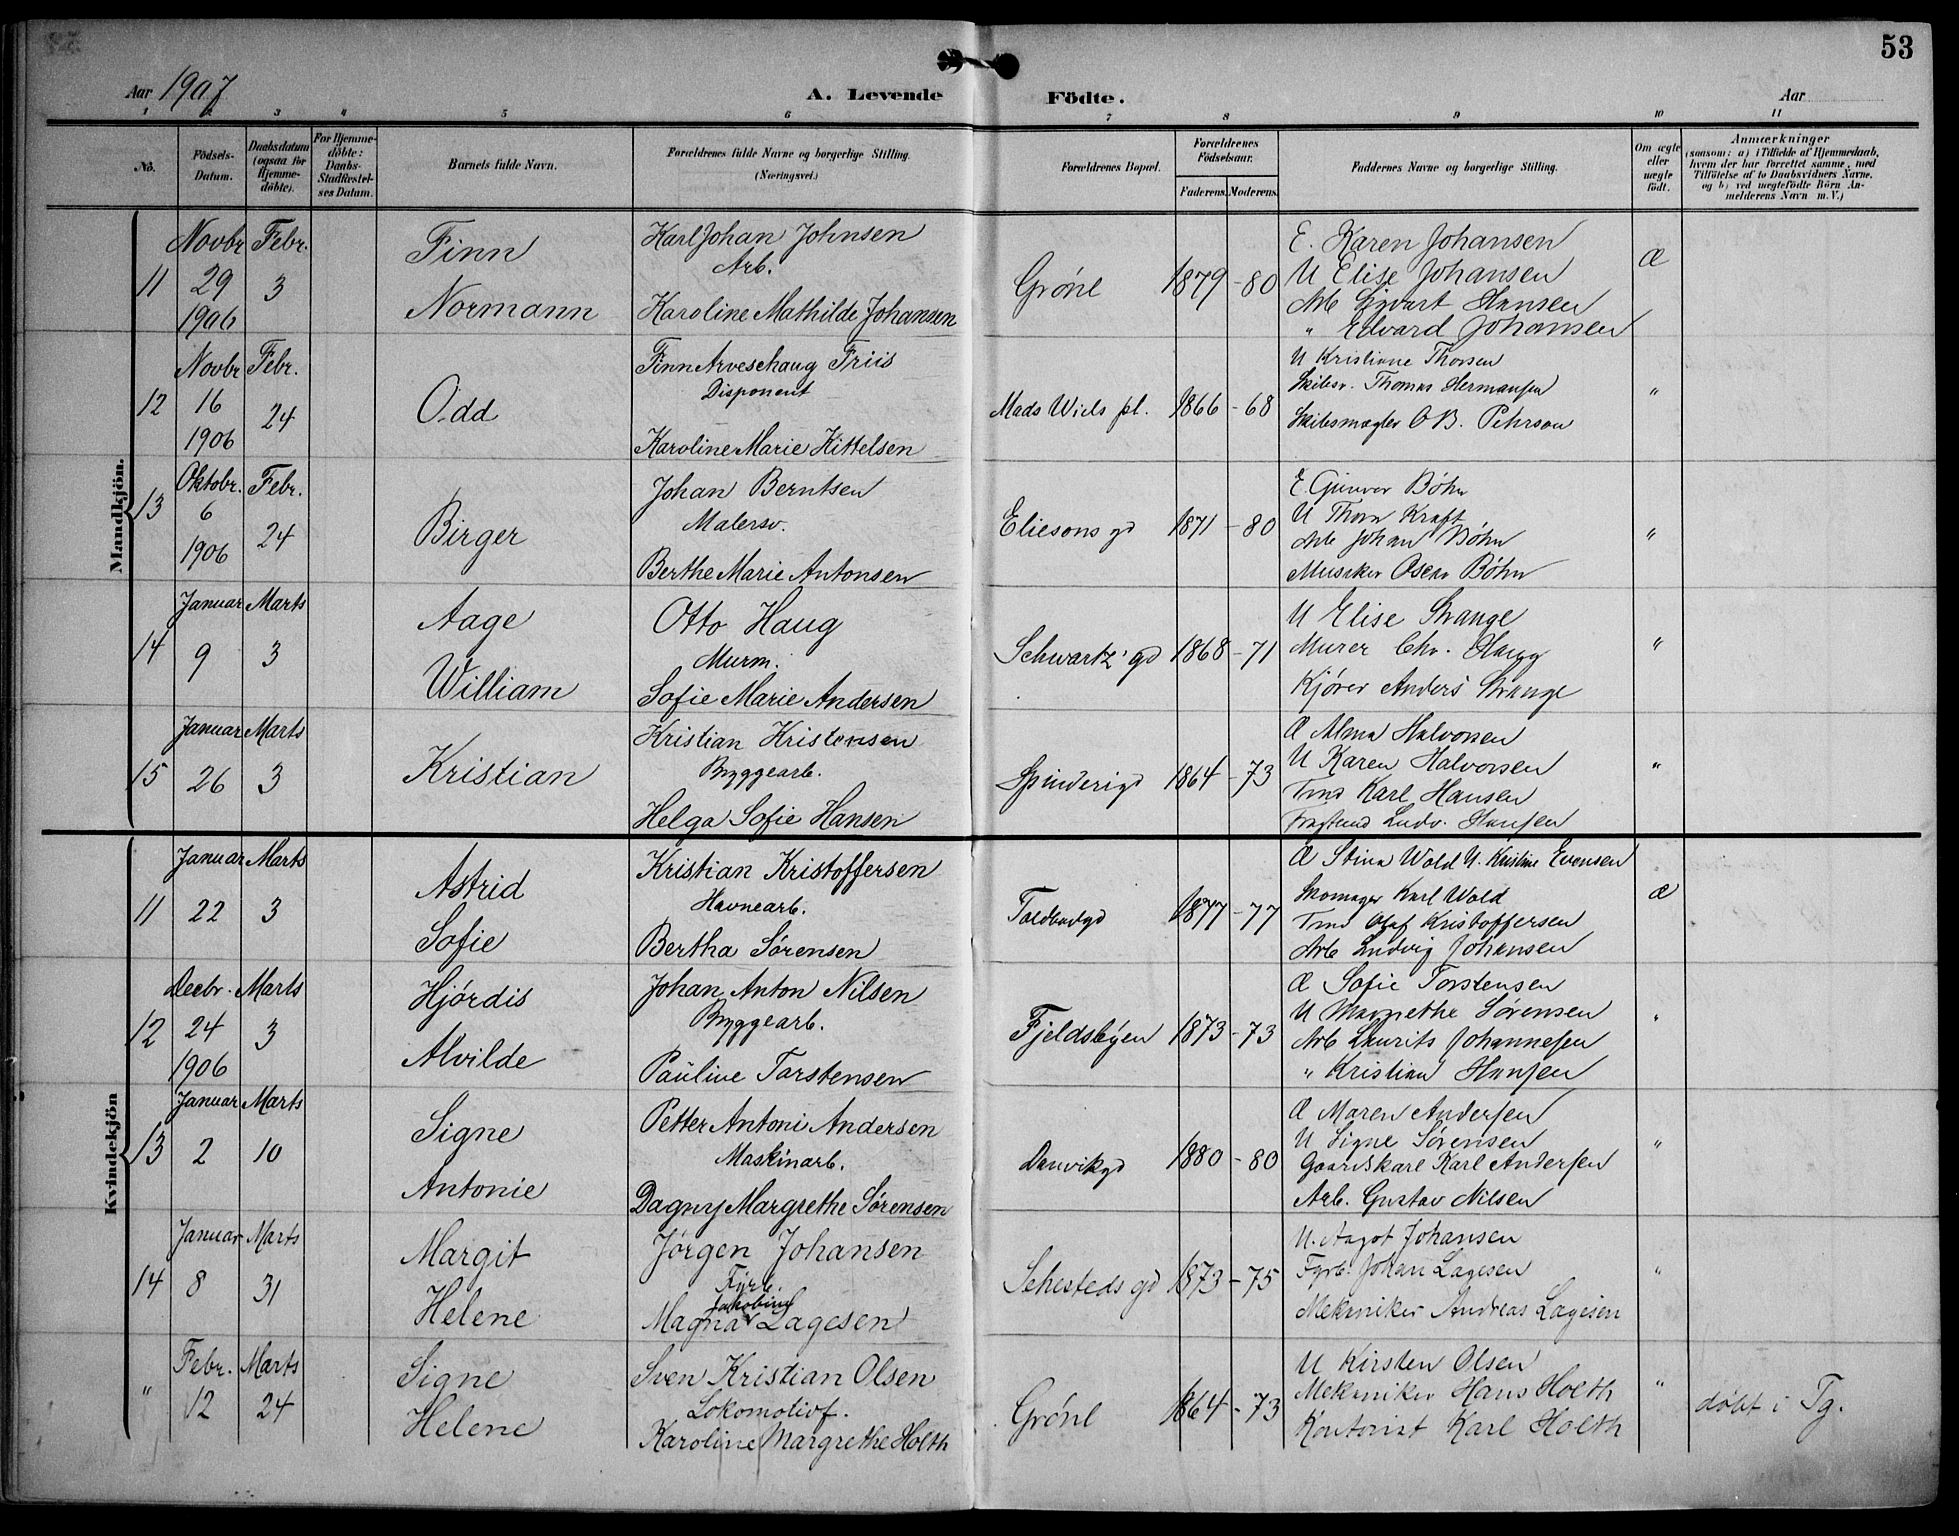 53
Aar 1907
A. Levende Födte.
Aar
1 2 3 4 5 6 7 8 9 10 11
No. Födsels-Datum. Daabsdatum (ogsaa for Hjemmedöbte). For Hjemmedöbte: Daabs-Stadfæstelses Datum. Barnets fulde Navn. Forældrenes fulde Navne og borgerlige Stilling. (Næringsvei.) Forældrenes Bopæl. Forældrenes Födselsaar. Faderens. Moderens. Faddernes Navne og borgerlige Stilling. Om ægte eller uægte födt. Anmærkninger (saasom: a) i Tilfælde af Hjemmedaab, hvem der har forrettet samme, med Tilföielse af to Daabsvidners Navne, og b) ved uægtefödte Börn Anmelderens Navn m.V.)
Mandkjön.
Novbr Febr. Finn Karl Johan Johnsen E. Karen Johansen Æ
11 29 3 Arb. Grønl 1879 - 80 U Elise Johansen
1906 Normann Karoline Mathilde Johansen Arb Sigvart Hansen
" Edvard Johansen
Novbr Febr. Finn Arveschaug Friis U Kristiane Thorsen
12 16 24 Odd Disponent Mads Wiels pl. 1866 - 68 Skibsr. Thomas Hermansen "
1906 Karoline Marie Kittelsen Skibsmægler O B. Pehrson
Oktobr. Febr. Johan Berntsen E. Gunvor Bøhn
13 6 24 Birger Malersv. Eliesons gd 1871 - 80 U Thora Kraft "
1906 Berthe Marie Antonsen Arb Johan Bøhn
Musiker Oscar Bøhn
Januar Marts Aage Otto Haug U Elise Strange
14 9 3 Murm. Schwartz' gd 1868 - 71 Murer Chr. Haug "
William Sofie Marie Andersen Kjører Anders Strange
Januar Marts Kristian Kristensen Æ Alma Halvorsen
15 26 3 Kristian Byggearb. Spinderigd 1864 - 73 U Karen Halvorsen "
Helga Sofie Hansen Tmd Karl Hansen
Ludv. Hansen
Kvindekjön
Januar Marts Astrid Kristian Kristoffersen Æ Stina Wold U. Kristine Evensen
11 22 3 Havnearb. Toldbodgd 1877 - 77 Skomager Karl Wold Æ
Sofie Bertha Sørensen Tmd Olaf Kristoffersen
Arb Ludvig Johansen
Decbr. Marts Hjørdis Johan Anton Nilsen Æ Sofie Torstensen
12 24 3 Byggearb. Fjeldsbyen 1873 - 73 U Sørensen "
1906 Alvilde Pauline Torstensen Arb Laurits Johannesen
" Kristian Hansen
Januar Marts Signe Petter Antoni Andersen Æ Maren Andersen
13 2 10 Maskinarb. Danvikgd 1880 - 80 U Signe Sørensen "
Antonie Dagny Margrethe Sørensen Gaardskarl Karl Andersen
Arb. Gustav Nilsen
Januar Marts Margit Jørgen Johansen U. Aagot Johansen
14 8 31 Fyrb. Sehesteds gd 1873 - 75 Fyrb. Johan Lagesen "
Helene Magna Jakobine Lagesen Mekaniker Andreas Lagesen
Febr. Marts Signe Sven Kristian Olsen U Kirsten Olsen
" 12 24 Lokomotivf. Grønl 1864 - 73 Mekaniker Hans Holth " døbt i Tg.
Helene Karoline Margrethe Holth Kontorist Karl Holth